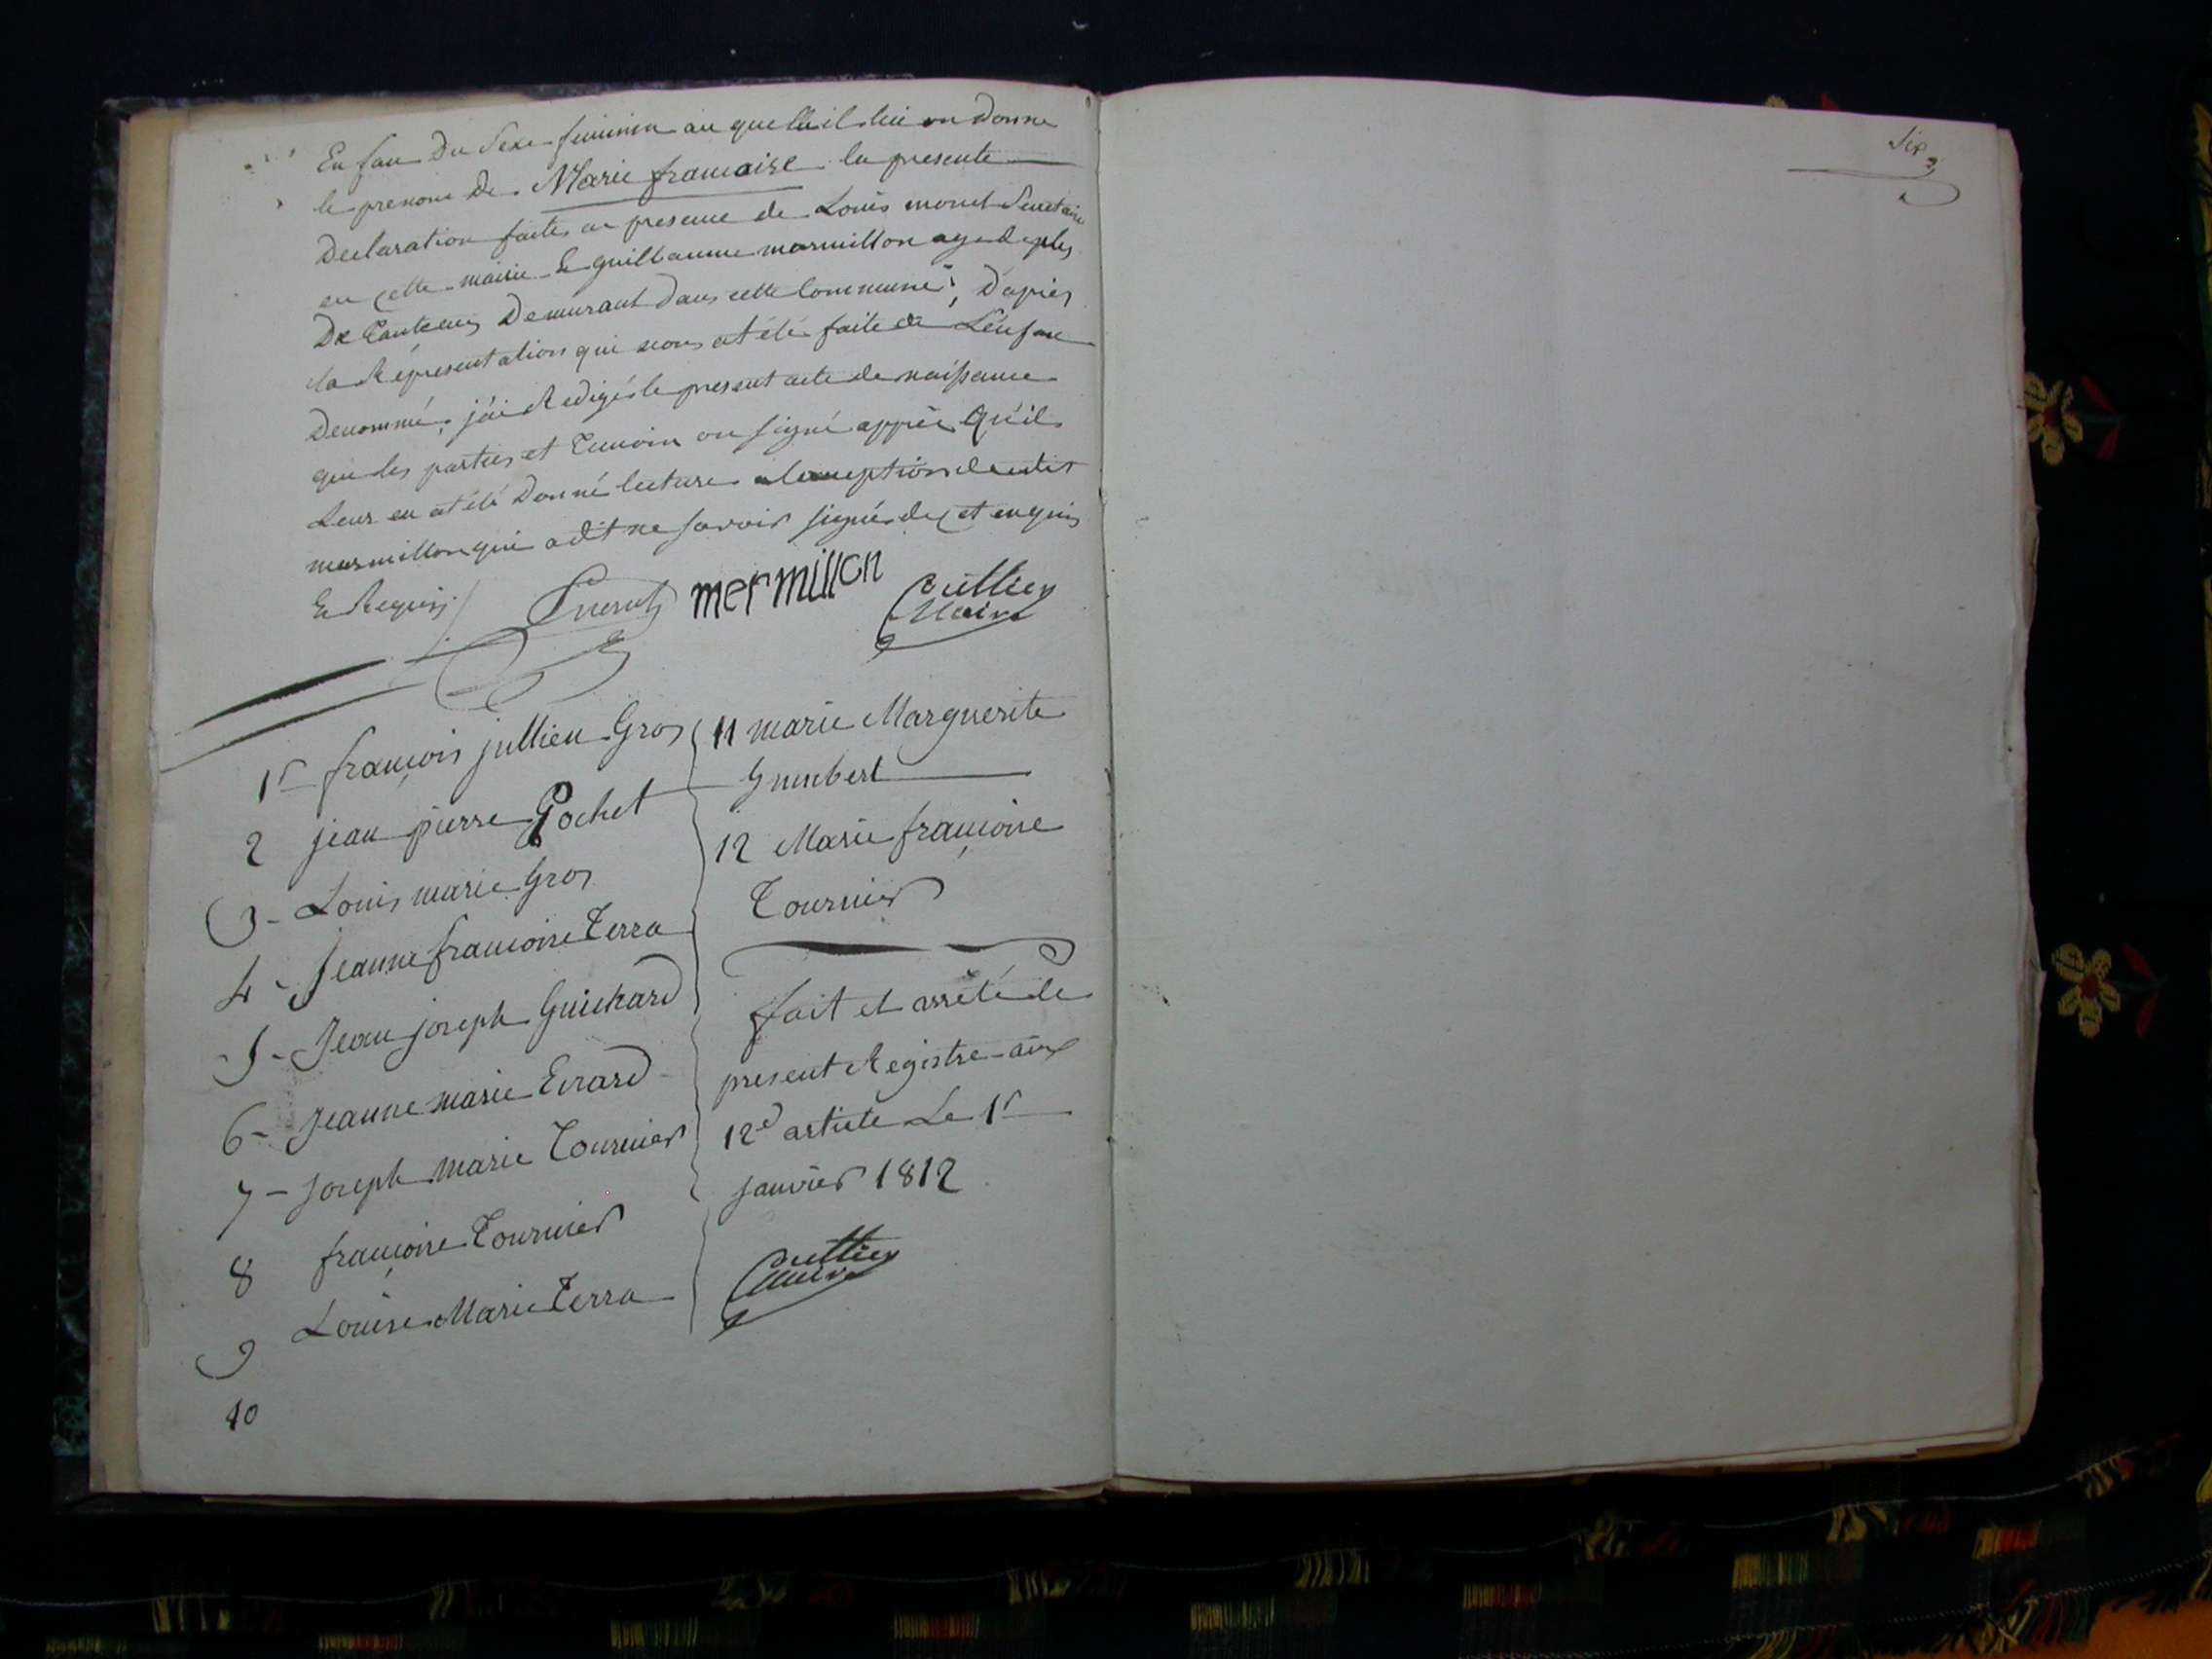 Enfan Du Sexe feminin au quelle il lui on Donne
le prenom De Marie francaise la presente
Declaration faites en presence de Louis monet Secretaire
en cette mairie Et guillaume mermillon agé de plus
De Demurant dans cette Commune, D'aprés
la Répresentation qui nous at été faite de L'énfan
Denommé, j'ái Redigé le present acte de naissance
que les parties et Temoin on signé apprés Qu'il
Leur en at été Donné lecture a l'exeption dudit
mermillon qui a dit ne savoir signé de ce enquis
Et Requis
mermillon
Cullien
Maire
1r françois jullien Gros
2 jean pierre Gochet
3 - Louis marie Gros
4 - Jeanne francoise Terra
5 - Jean joseph Guichard
6 - Jeanne marie Evrard
7 - joseph marie Tournier
8 françoise Tournier
9 Louise Marie Terra
10
11 marie Marguerite
Humbert
12 Marie françoise
Tournier
fait et arrêté le
present Registre aux
12e article Le 1r
janvier 1812
Cullien
Maire
Six